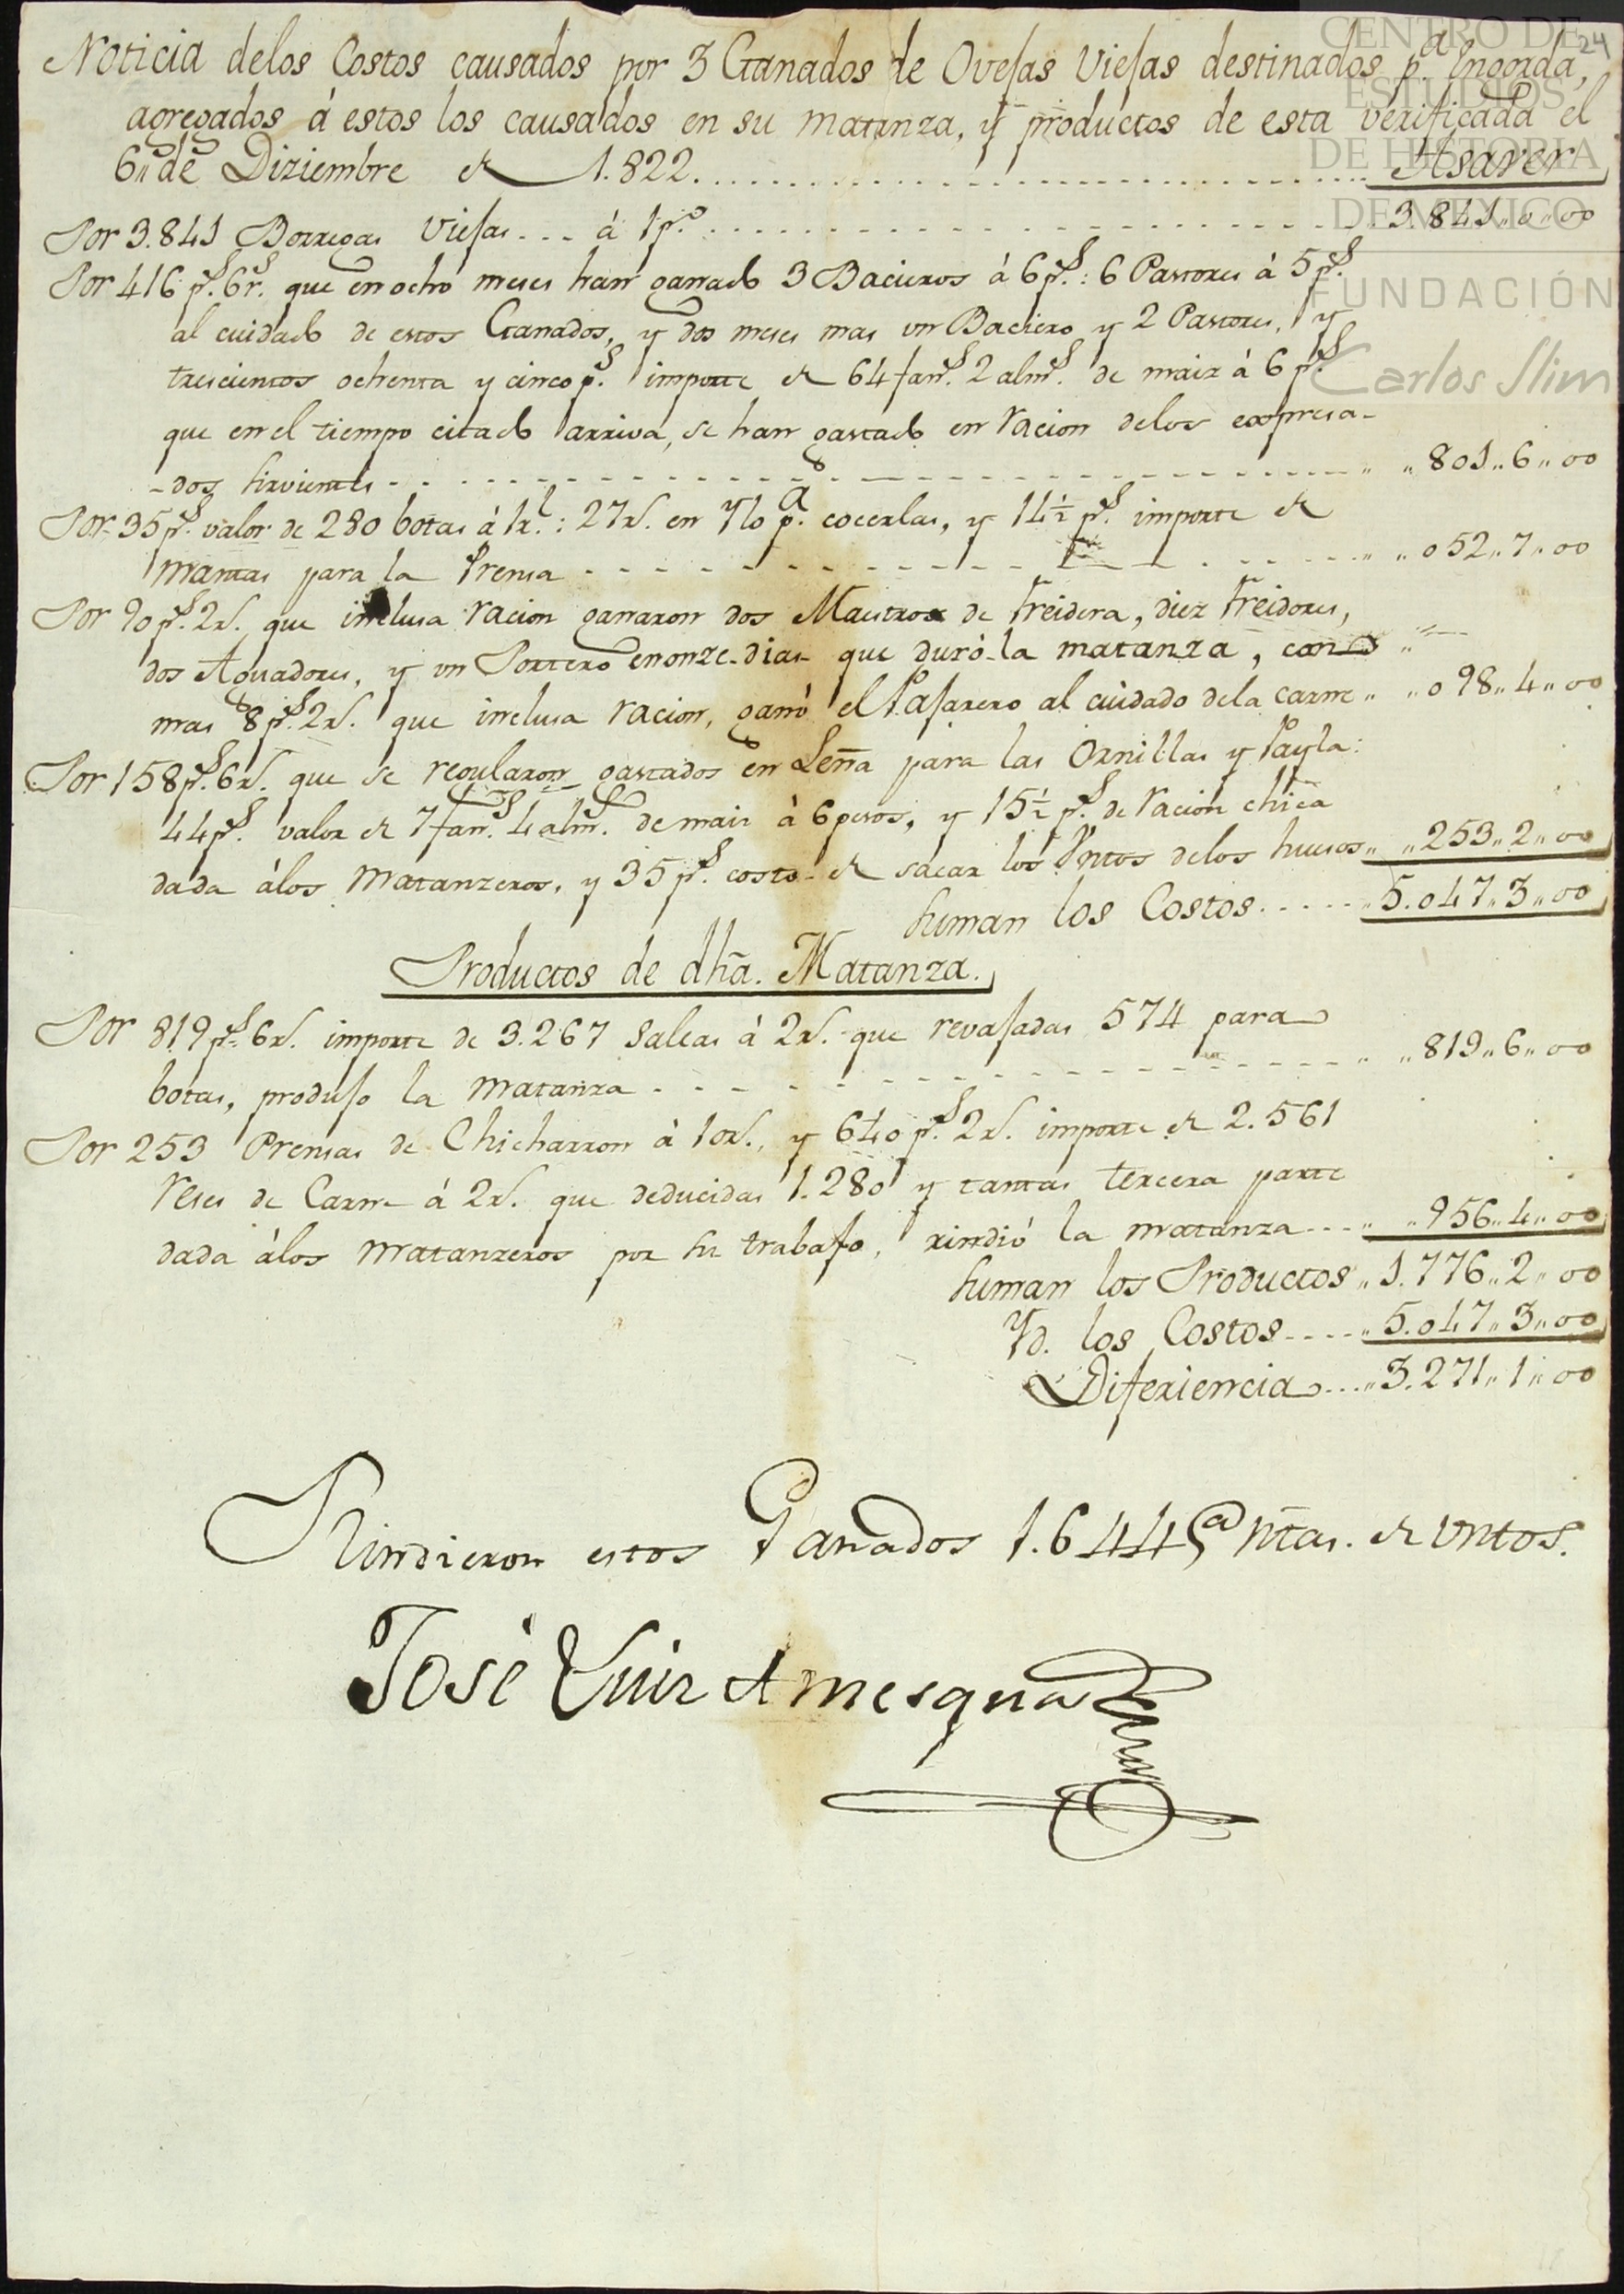 CENTRO DE
ESTUDIOS
DE HISTORIA
DE MÉXICO
FUNDACIÓN
Carlos Slim
24
Noticia delos Costos causados por 3 Ganados de Ovejas Viejas destinados p.ª Engorda,
agregados á estos los causados en su matanza, y productos de esta verificada el
6,, de Diziembre de 1.822. Asaver
Por 3.841 Borregas Viejas - - - á 1 p.º 3.841,,0,,00
Por 416 p.s 6 r.s que en ocho meses han ganado 3 Bacieros á 6 p.s: 6 Pastores á 5 p.s
al cuidado de estos Ganados, y dos meses mas un Baciero y 2 Pastores, y
trescientos ochenta y cinco p.s importe de 64 fan.s 2 alm.s de maiz á 6 p.s
que en el tiempo citado arriva, se han gastado en racion delos expresa-
-dos sirvientes - - - ,, ,,801,,6,,00
Por 35 p.s valor de 280 botas á 1 r.l: 27 r.s en Ylo p.ª cocerlas, y 14½ p.s importe de
mantas para la Prensa - - - ,, ,,052,,7,,00
Por 90 p.s 2 r.s que inclusa racion ganaron dos Maestros de freidera, diez freidores,
dos Aguadores, y un Portero en onze dias que duró la matanza, con
mas 8 p.s 2 r.s que inclusa racion, ganó el Pajarero al cuidado dela carne ,, ,,098,,4,,00
Por 158 p.s 6 r.s que se regularon gastados en Leña para las Ornillas y Payla:
44 p.s valor de 7 fan.s 4 alm.s de maiz á 6 pesos, y 15½ p.s de racion chica
dada álos Matanzeros, y 35 p.s costo de sacar los Untos delos huesos ,, ,,253,,2,,00
Suman los Costos - - - ,,5.047,,3,,00
Productos de dha. Matanza.
Por 819 p.s 6 r.s importe de 3.267 Saleas á 2 r.s que revajadas 574 para
botas, produjo la Matanza - - - ,, ,,819,,6,,00
Por 253 Prensas de Chicharron á 10 r.s, y 640 p.s 2 r.s importe de 2.561
reses de Carne á 2 r.s que deducidas 1.280 y tantas tercera parte
dada álos Matanzeros por su trabajo, rindió la matanza - - - ,, ,,956,,4,,00
Suman los Productos ,,1.776,,2,,00
Yd. los Costos - - - ,,5.047,,3,,00
Diferiencia - - - ,,3.271,,1,,00
Rindieron estos Ganados 1.644 @ ntas. de untos.
José Luis Amesqua